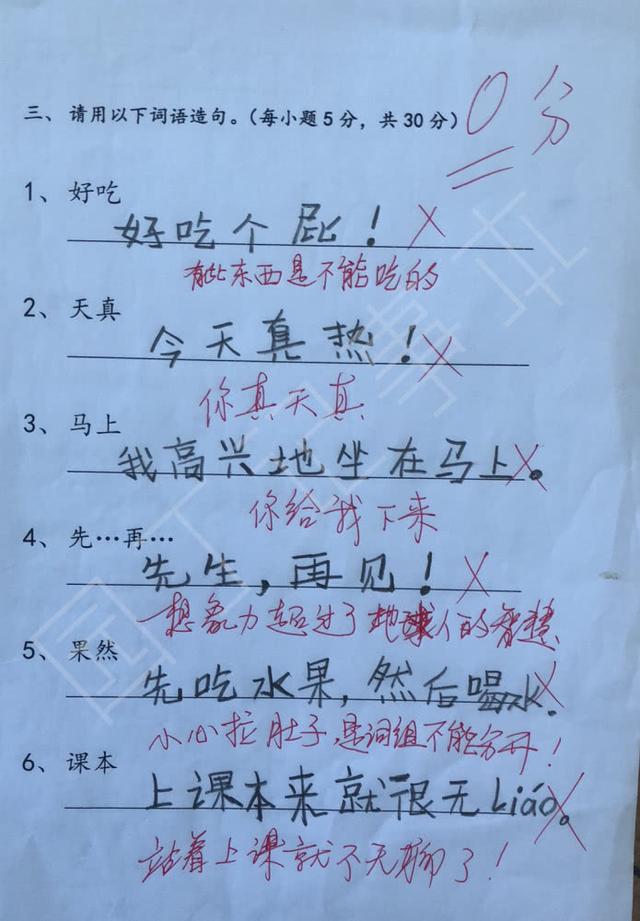 三、请用以下词语造句。（每小题5分，共30分）
0分
1、好吃
好吃个屁！
有些东西是不能吃的
2、天真
今天真热！
你真天真
3、马上
我高兴地坐在马上。
你给我下来
4、先…再…
先生，再见！
想象力超过了地球人的智慧
5、果然
先吃水果，然后喝水.
小心拉肚子,是词组不能分开！
6、课本
上课本来就很无Liáo。
站着上课就不无聊了！